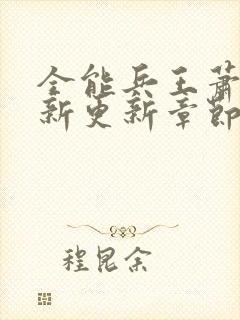 全能兵王萧
新更新章節
程昆余